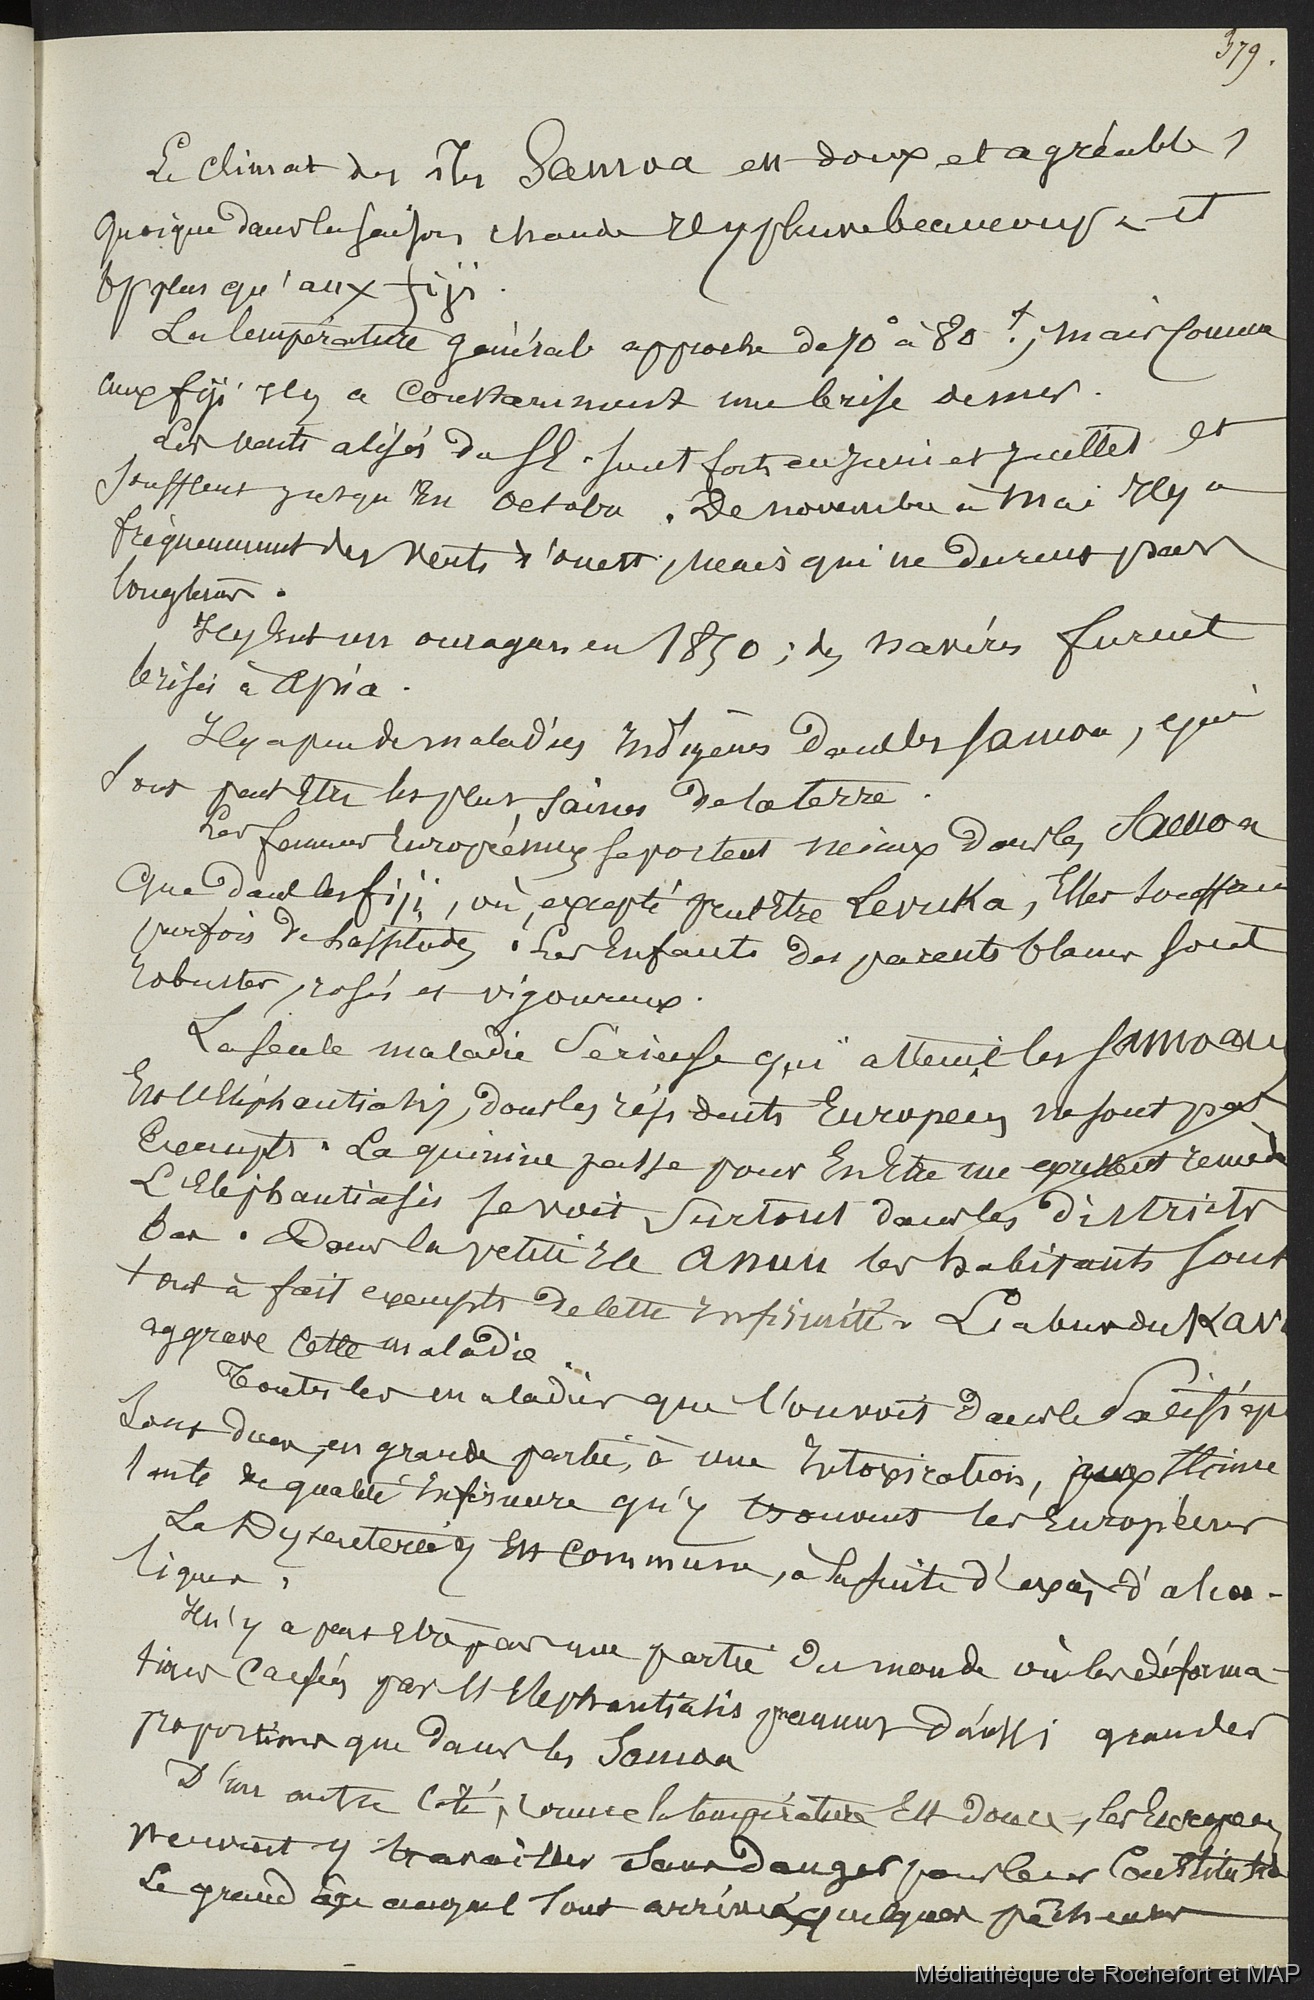 379.
Le climat des îles Samoa est doux et agréable,
quoique dans la saison chaude il y pleuve beaucoup et
plus qu'aux fiji.
La température générale approche de 70° à 80°; mais comme
aux fiji il y a constamment une brise de mer.
Les vents alisés du SE. sont forts en juin et juillet et
soufflent jusqu'en octobre. De novembre à Mai il y a
fréquemment des vents d'ouest, mais qui ne durent pas
longtems.
Il y eut un ouragan en 1850; des navires furent
brisés à Apia.
Il y a peu de maladies indigènes dans les Samoa, qui
sont peut être les plus saines de la terre.
Les femmes Européennes se portent mieux dans les Samoa
que dans les fiji, où, excepté peut être Levuka, Elles souffrent
parfois de lassitude. Les Enfants des parents blancs sont
robustes, rosés et vigoureux.
La seule maladie sérieuse qui atteint les Samoans
Est l'Eléphantiasis, dont les résidents Européens ne sont pas
Exempts. La quinine passe pour En Etre un excellent remède
L'Eléphantiasis se voit surtout dans les districts
bas. Dans la petite ile Anuu les habitants sont
tout à fait exempts de cette infirmité. L'abus du Kava
aggrave cette maladie.
Toutes les maladies que l'on voit dans le Pacifique
sont dues, en grande partie, à une Intoxication, aux stimu
lants de qualité inférieure qu'y trouvent les Européens
La Dysenterie y Est commune, à la suite d'excès d'alcoo-
liques.
Il n'y a peut être pas une partie du monde où les déforma-
tions causées par l'Elephantiasis prennent d'aussi grandes
proportions que dans les Samoa
D'un autre côté, comme la température Est douce, les Européens
peuvent y travailler sans danger pour leur Constitution
Le grand âge auquel sont arrivés quelques pêcheurs
Médiathèque de Rochefort et MAP